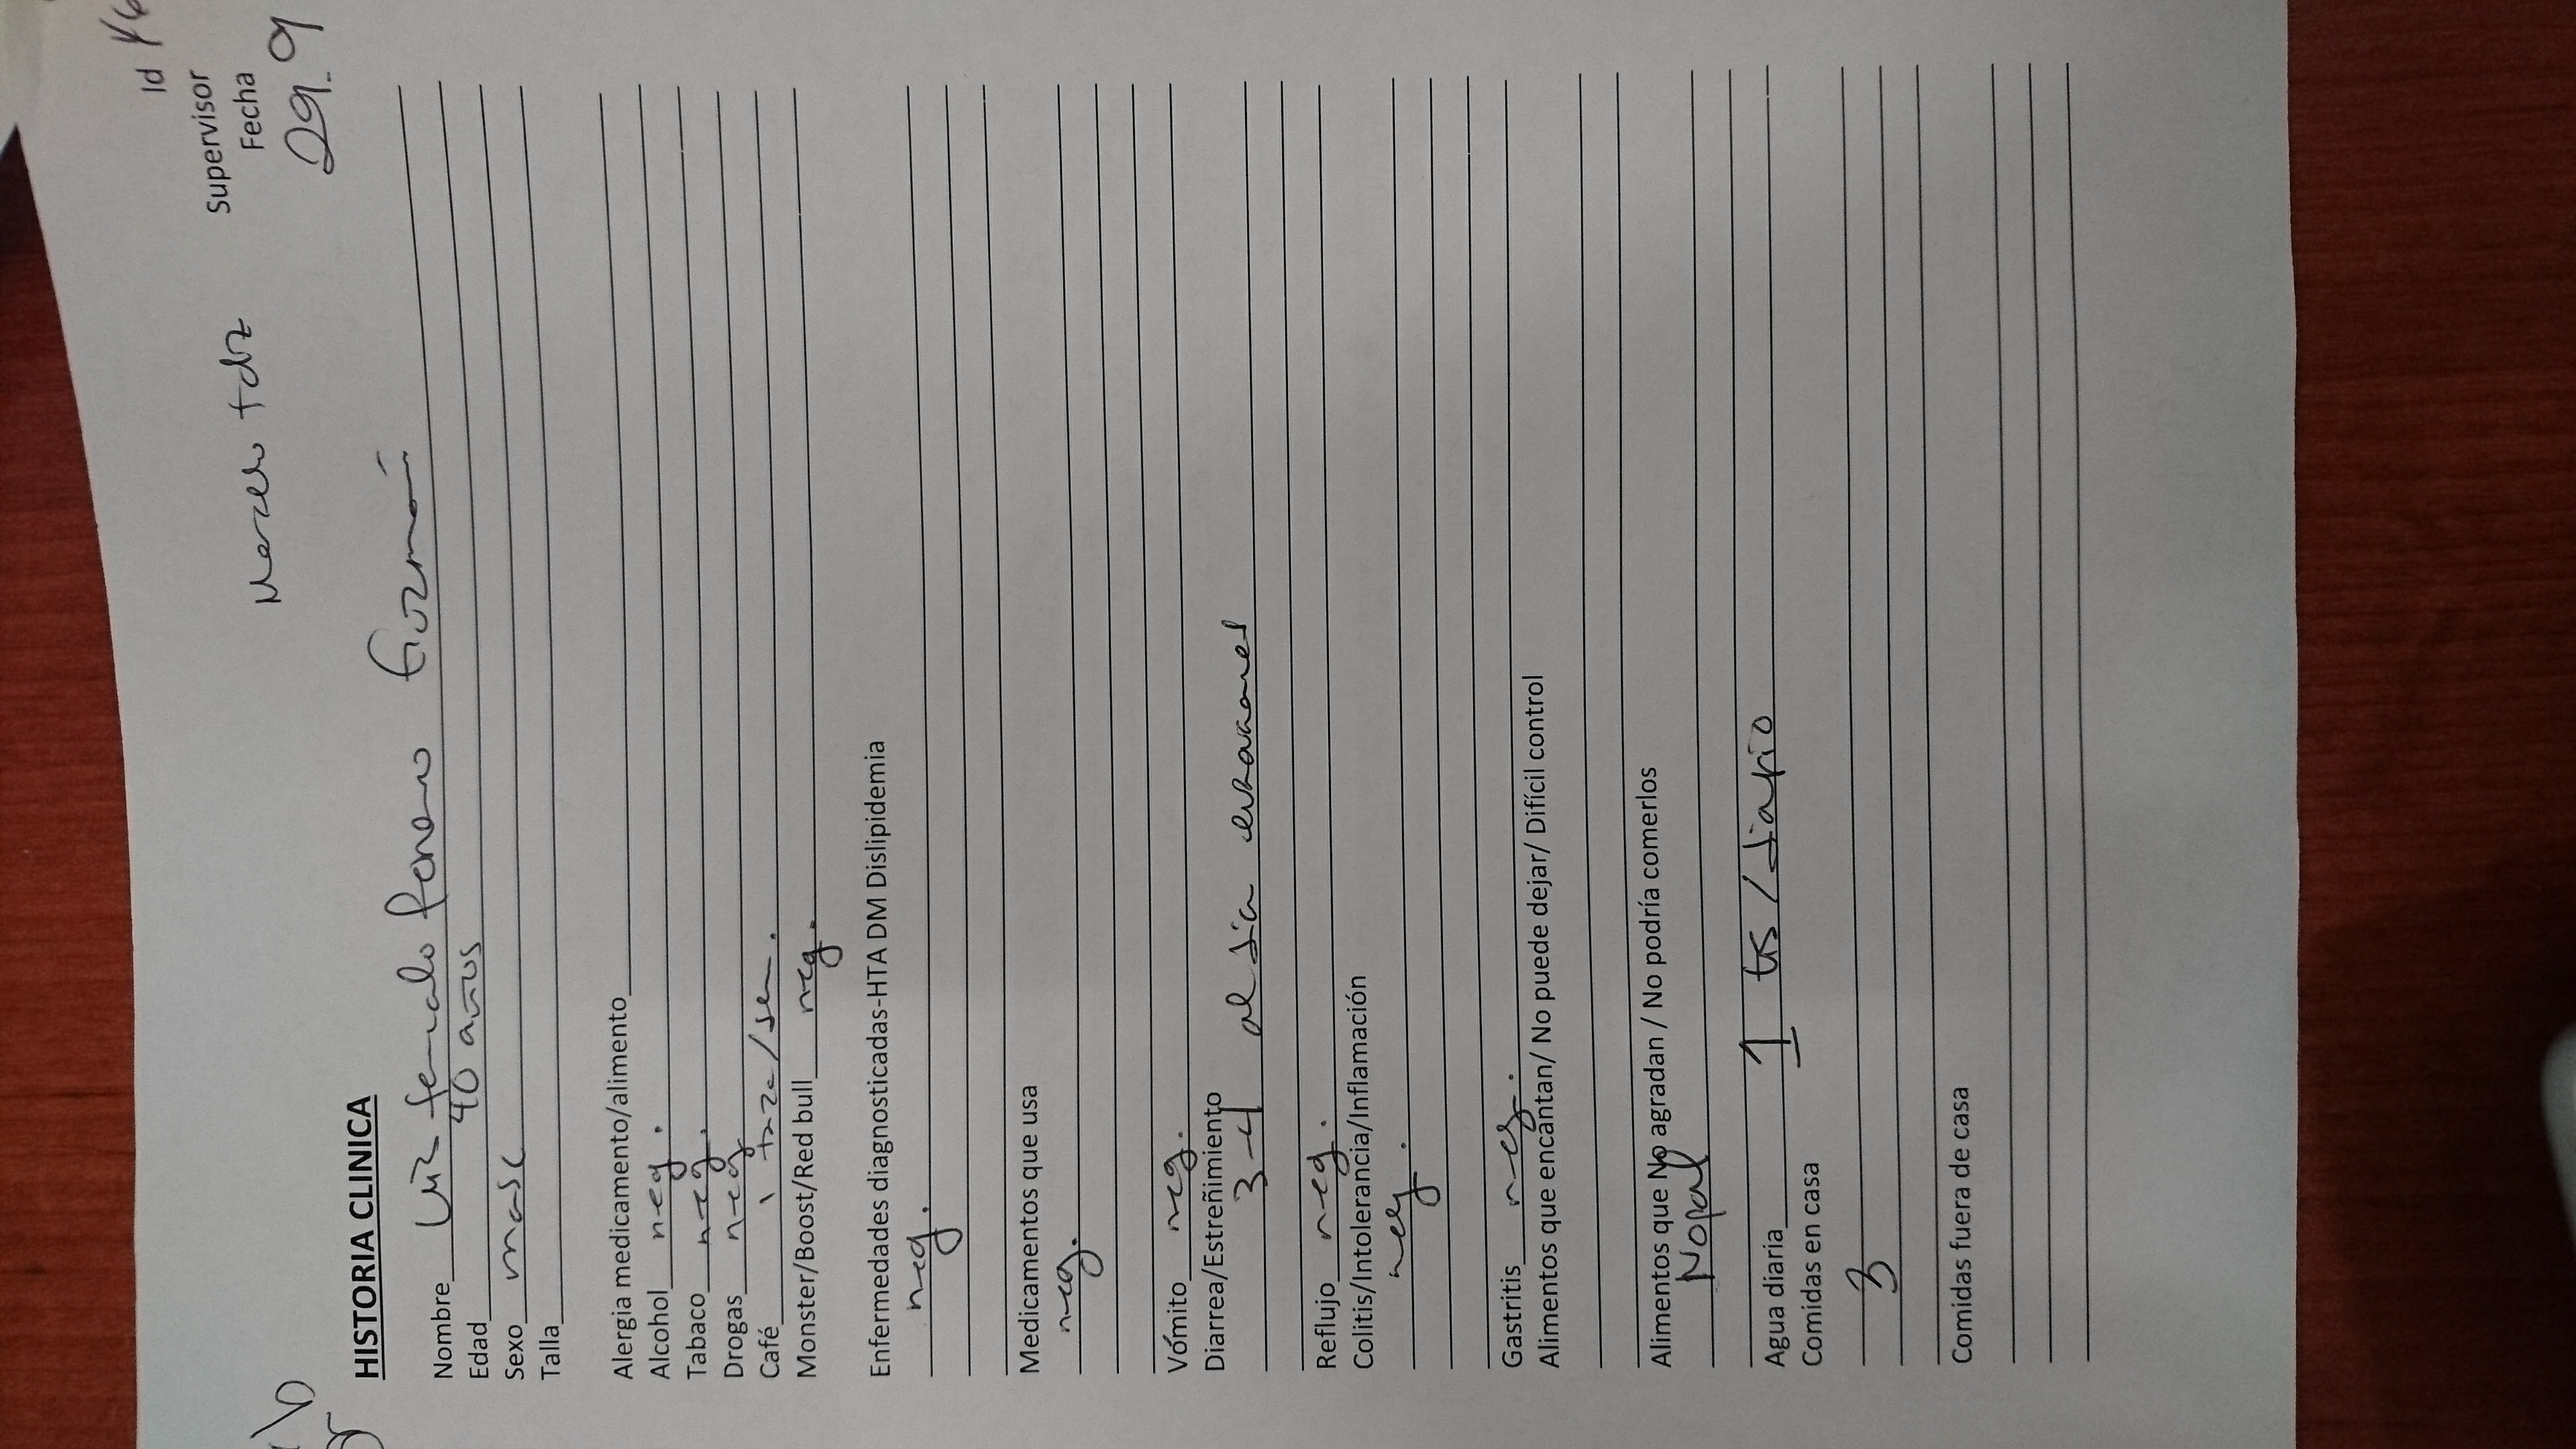 Id
Supervisor
Fecha
29.9
HISTORIA CLINICA
Nombre Guzmán
Edad 40 años
Sexo masc
Talla
Alergia medicamento/alimento
Alcohol neg.
Tabaco neg.
Drogas neg
Café 1 taza/sem.
Monster/Boost/Red bull neg.
Enfermedades diagnosticadas-HTA DM Dislipidemia
neg.
Medicamentos que usa
neg.
Vómito neg.
Diarrea/Estreñimiento
3-4 al día
Reflujo neg.
Colitis/Intolerancia/Inflamación
neg.
Gastritis neg.
Alimentos que encantan/ No puede dejar/ Difícil control
Alimentos que No agradan / No podría comerlos
Nopal
Agua diaria 1 /diario
Comidas en casa
3
Comidas fuera de casa